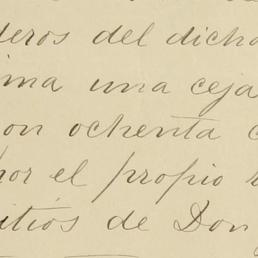 deros del dicho
ima una ceja
on ochenta c
por el propio
itios de Don